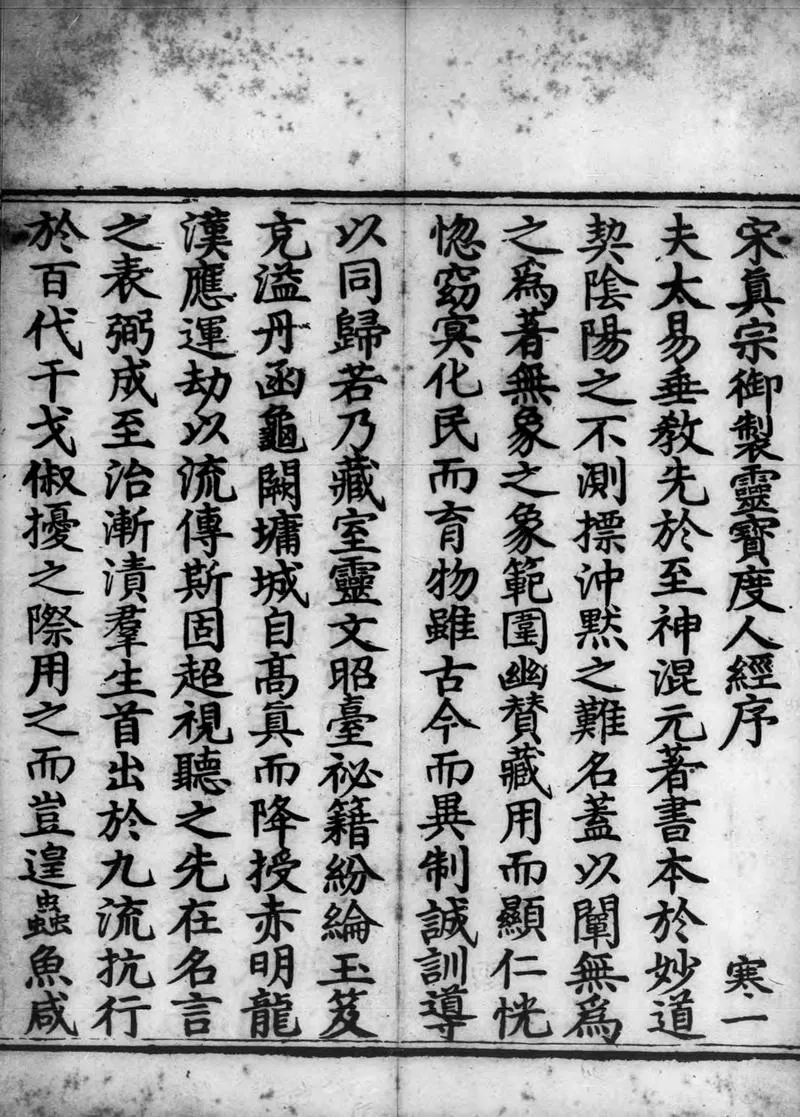 宋真宗御製靈寶度人經序 寒一
夫太易垂教先於至神混元著書本於妙道
契陰陽之不測摽沖黙之難名蓋以闡無為
之為著無象之象範圍幽賛藏用而顯仁恍
惚窈冥化民而育物雖古今而異制誠訓導
以同歸若乃藏室靈文昭臺祕籍紛綸玉笈
充溢丹函龜闕墉城自高真而降授赤明龍
漢應運劫以流傳斯固超視聽之先在名言
之表弼成至治漸漬羣生首出於九流抗行
於百代干戈俶擾之際用之而豈遑蟲魚咸